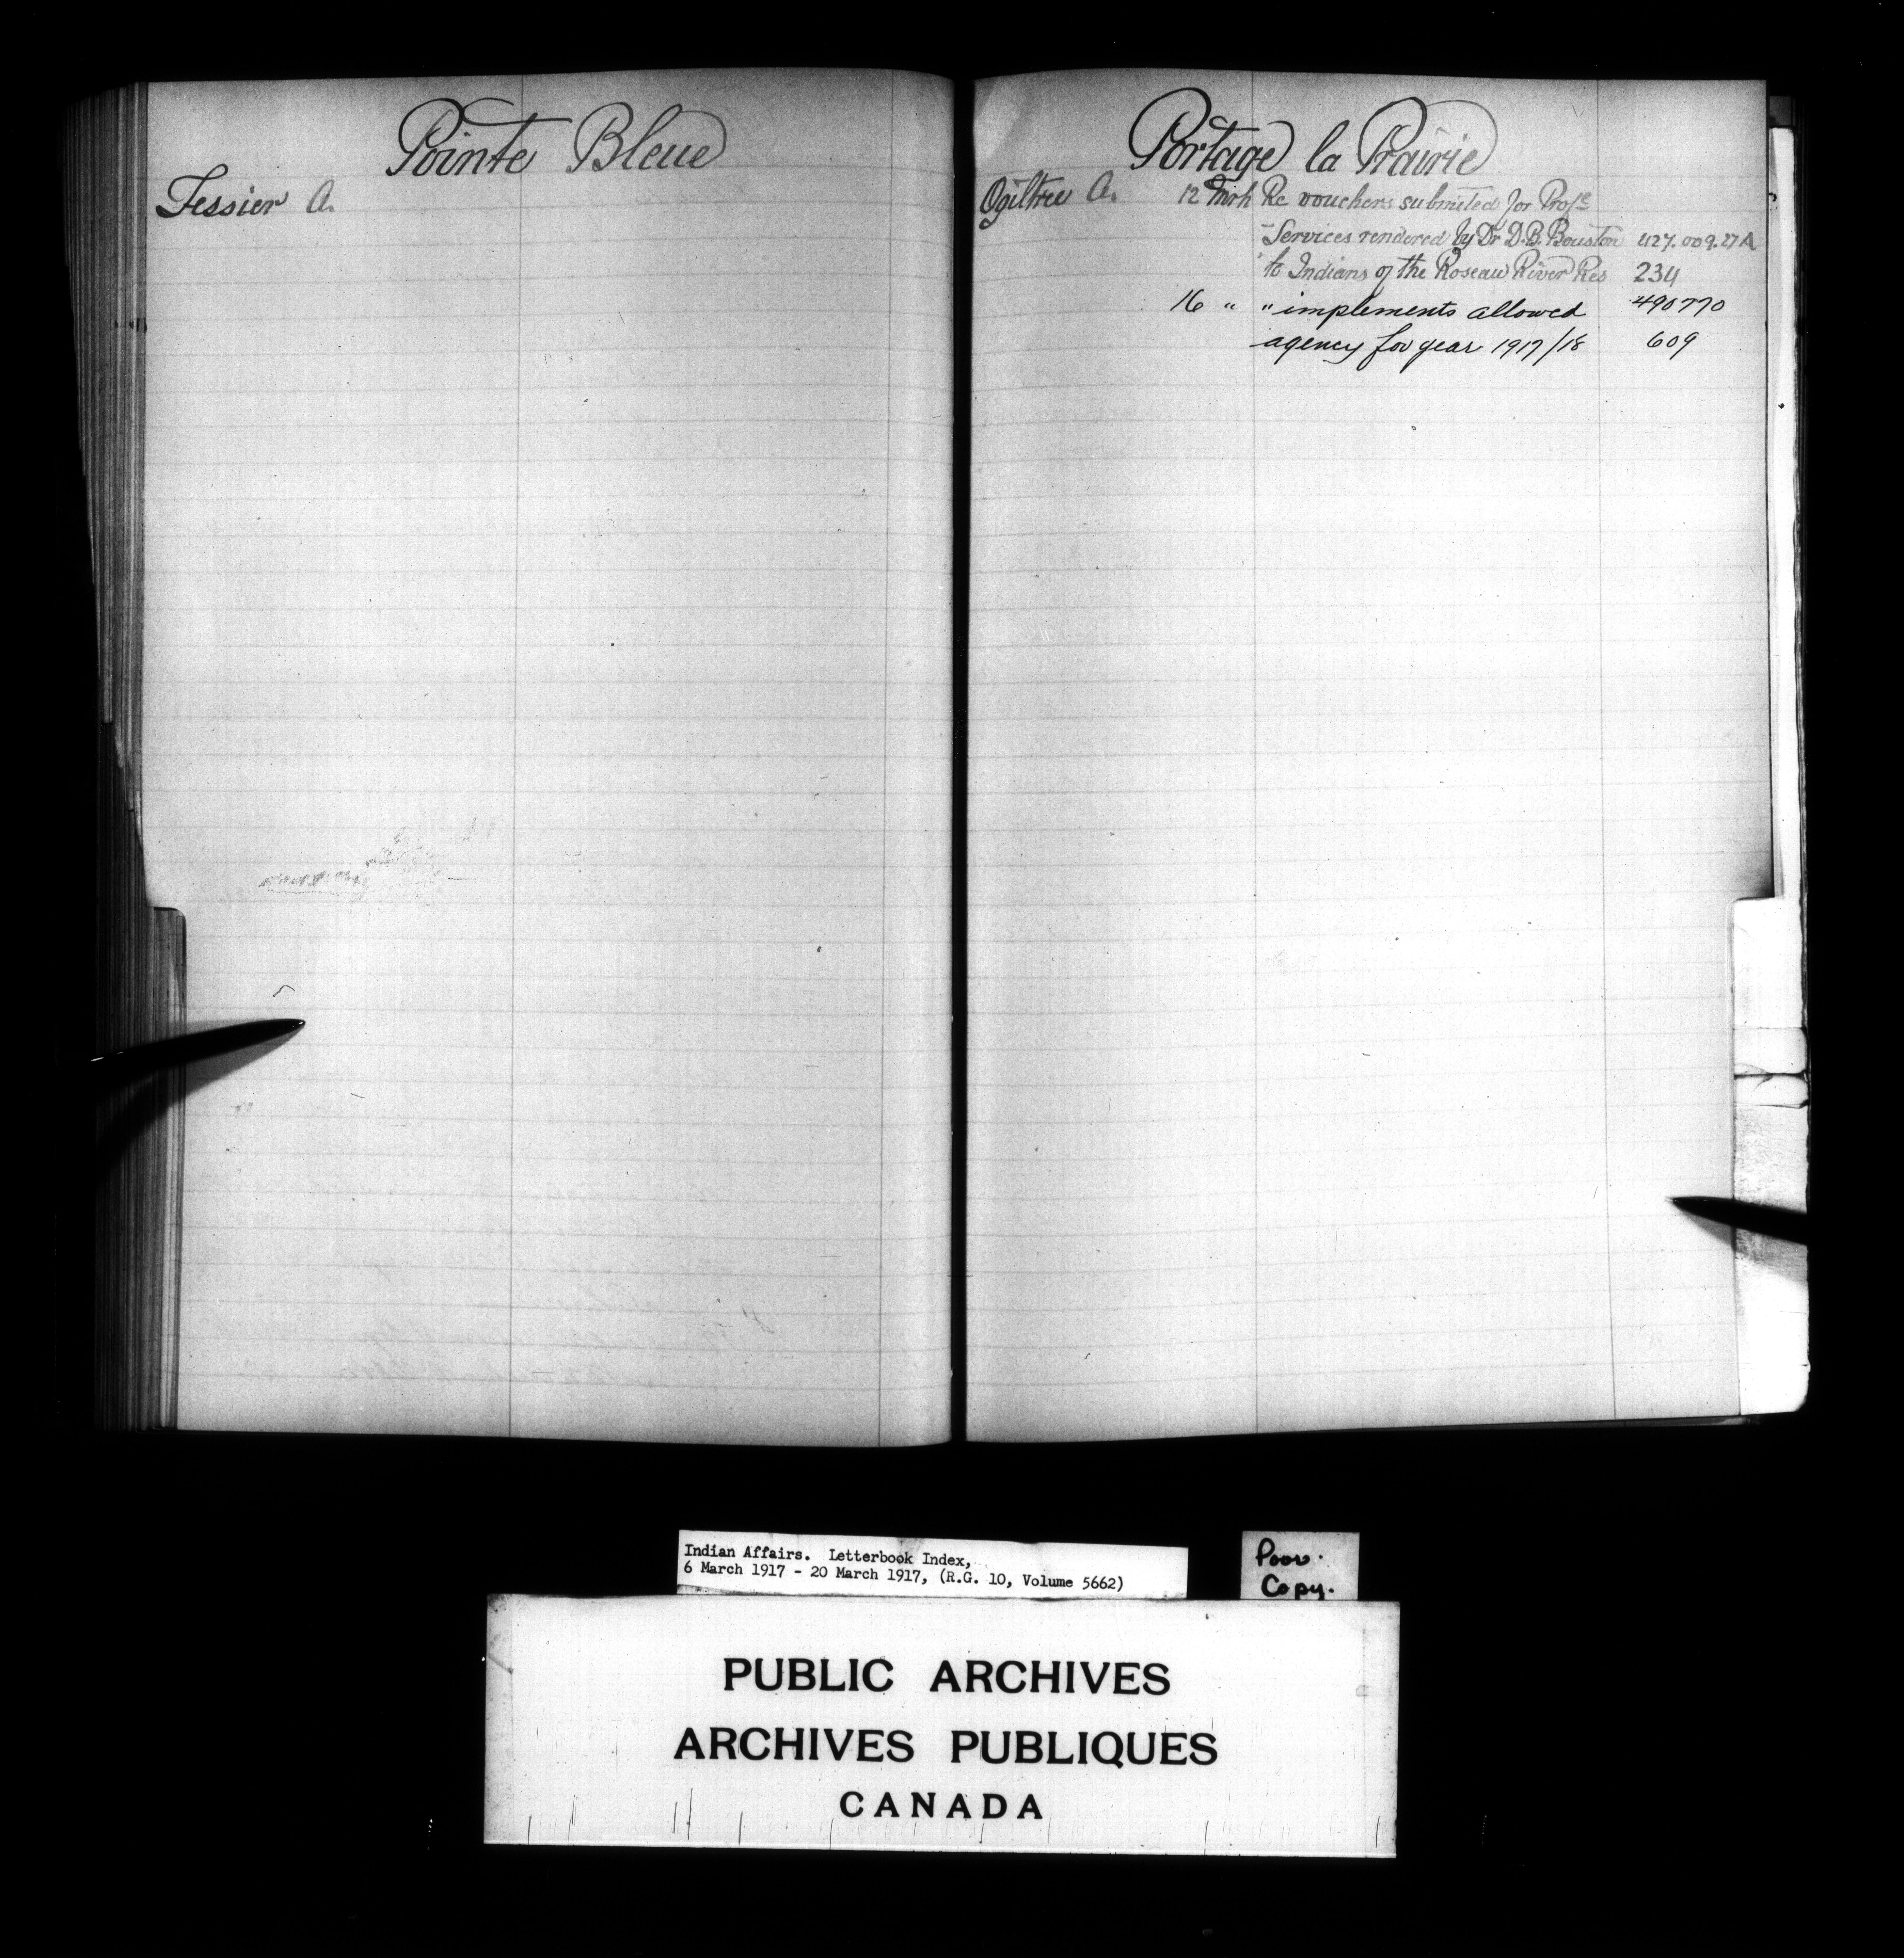 Pointe Bleue
Tessier A.
Portage la Prairie
Ogiltree A. 12 Mrh Re vouchers submited for Profs
Services rendered by Dr D.B. Bouston 427.009.27A
to Indians of the Roseau River Res 234
16 " " implements allowed 490770
agency for year 1917/18 609
Indian Affairs. Letterbook Index,
6 March 1917 - 20 March 1917, (R.G. 10, Volume 5662)
Poor.
Copy.
PUBLIC ARCHIVES
ARCHIVES PUBLIQUES
CANADA